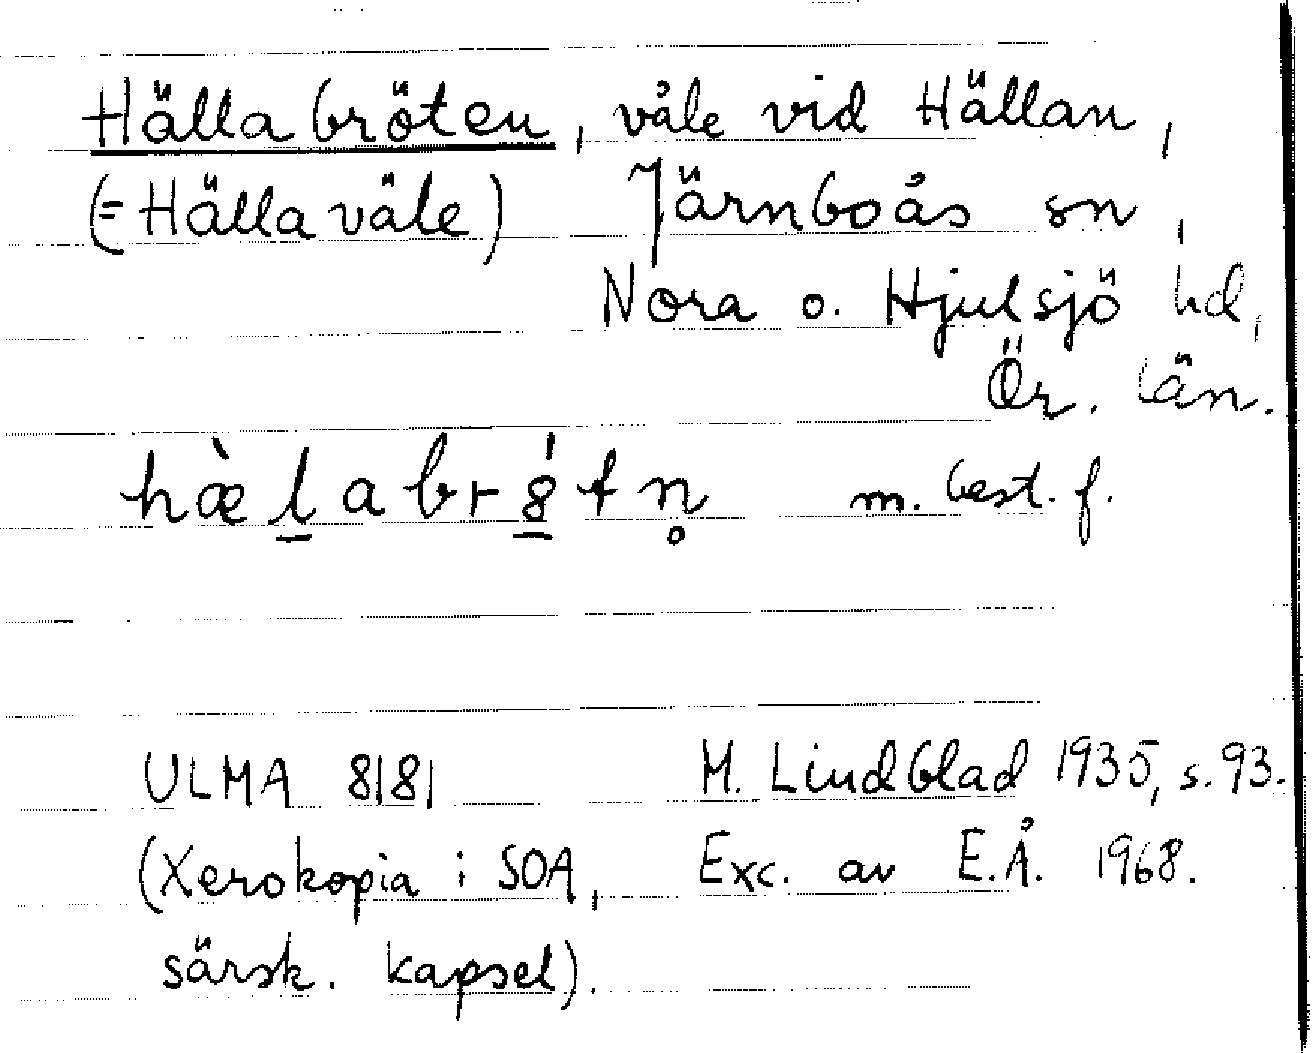 Hällabröten, våle vid Hällan,
(= Hällavåle) Järnboås sn,
Nora o. Hjulsjö hd,
Ör. län.
hæ̀l̲abrǿ̲tn̥ m. best. f.
ULMA 8181 M. Lindblad 1935, s. 93.
(Xerokopia i SOA, Exc. av E.Å. 1968.
särsk. kapsel).